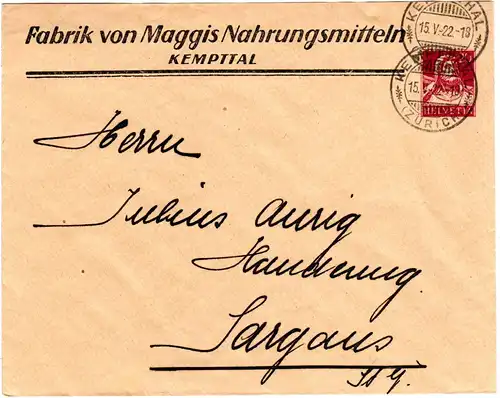 Fabrik von Maggis Nahrungsmitteln
KEMPTTAL
KEMPTTHAL
15.V-22.-18
(ZÜRICH)
HELVETIA
Herrn
Julius Aurig
Handlung.
Sargans
St G.